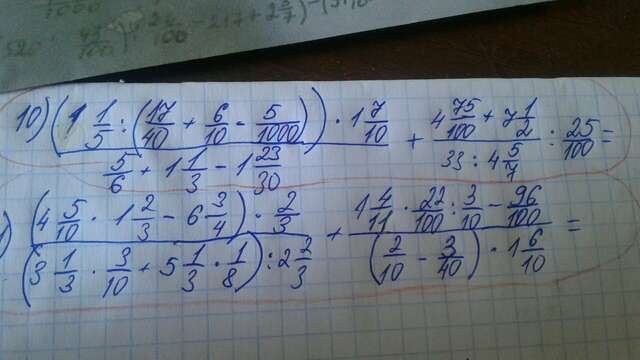 1000
10) (1 1/5 : (17/40 + 6/10 - 5/1000)) · 1 7/10 / 5/6 + 1 1/3 - 1 23/30 + 4 75/100 + 7 1/2 / 33 : 4 5/7 : 25/100 =
(4 5/10 · 1 2/3 - 6 3/4) · 2/3 / (3 1/3 · 3/10 + 5 1/3 · 1/8) : 2 2/3 + 1 4/11 · 22/100 : 3/10 - 96/100 / (2/10 - 3/40) · 1 6/10 =